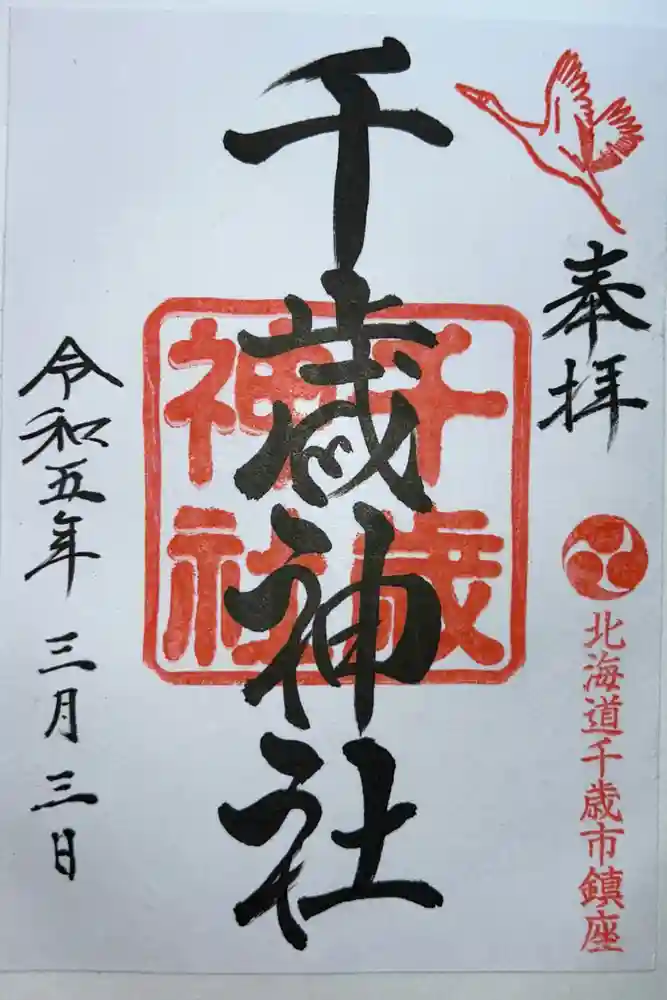 奉拝
北海道千歳市鎮座
千歳神社
千歳
神社
令和五年 三月 三日